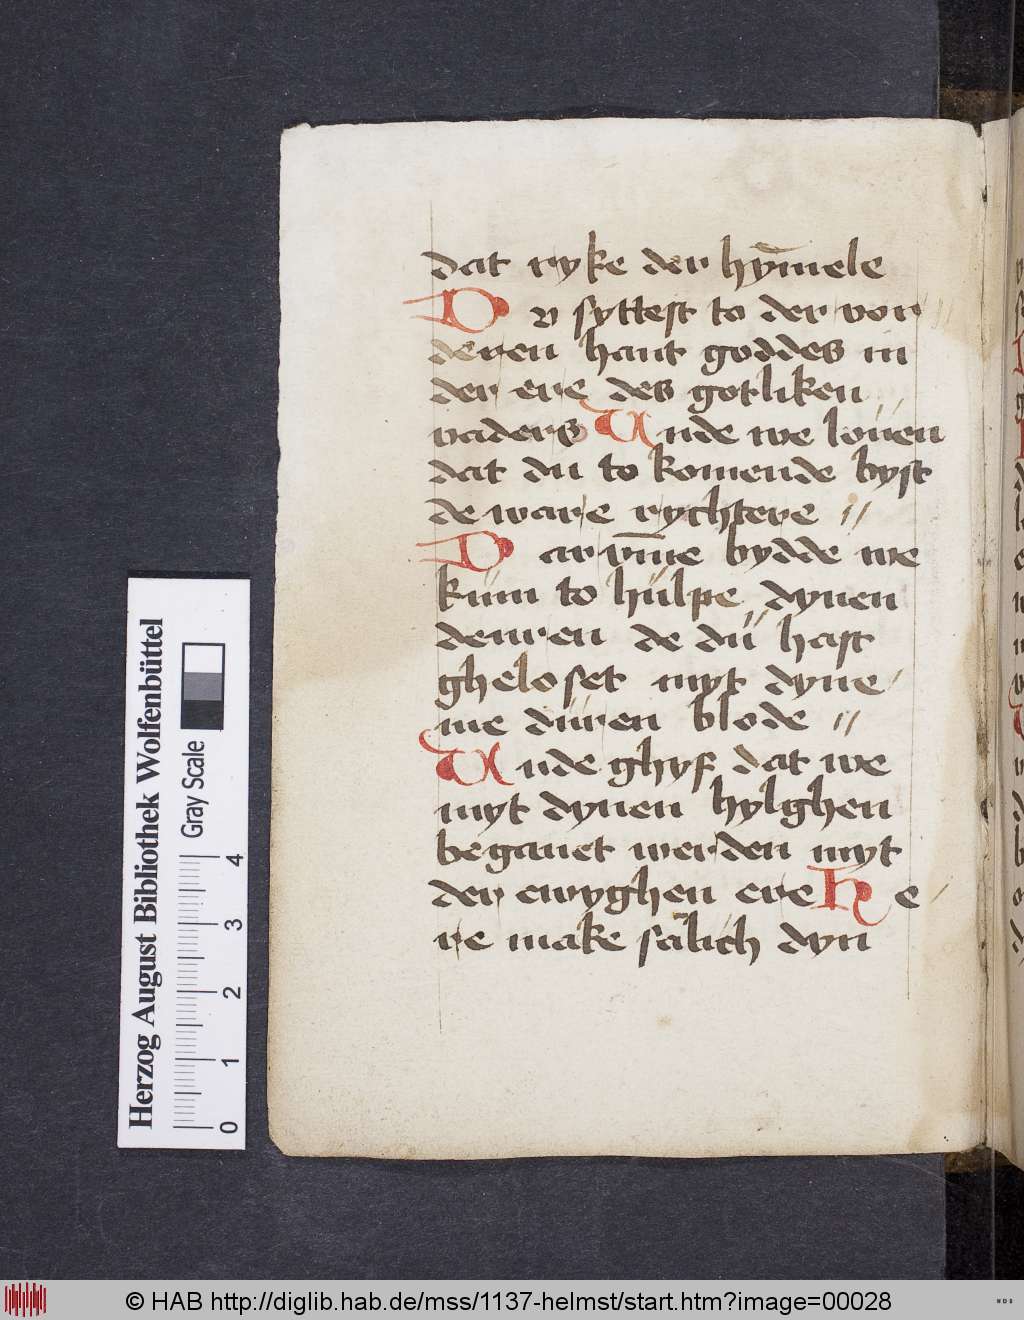 dat ryke der hȳmele
Du syttest to der vor
deren hant goddes in
der ere des gotliken
vaders Unde we louen
dat du to komende byst
de ware rychtere //
Dar vm̄e bydde we
kum to hulpe dynen
denren de du hast
gheloset myt dyne
me duren blode //
Unde ghyf dat we
myt dynen hylghen
begauet werden myt
der ewyghen ere He
re make salich dyn
Herzog August Bibliothek Wolfenbüttel
Gray Scale
0 1 2 3 4
© HAB http://diglib.hab.de/mss/1137-helmst/start.htm?image=00028